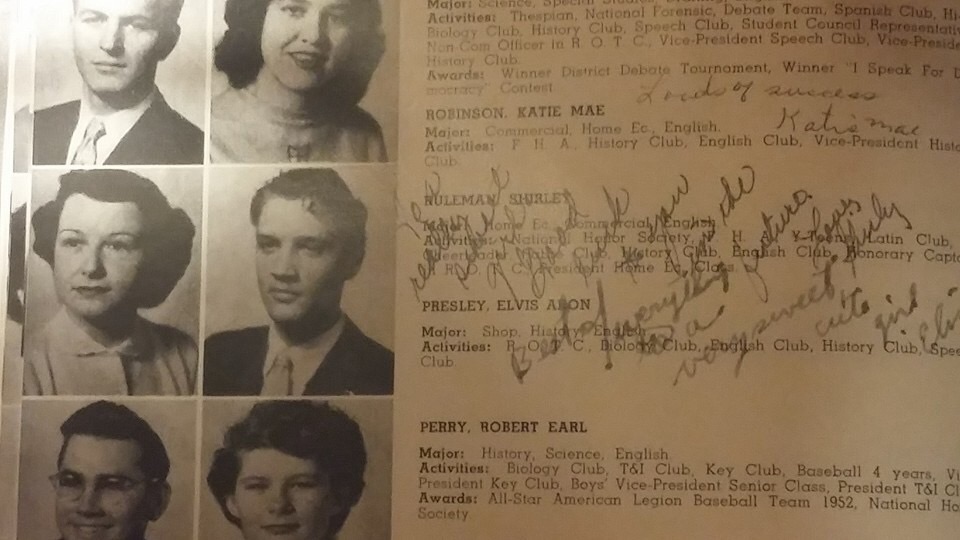 Major: Science, Special Studies,
Activities: Thespian, National Forensic, Debate Team, Spanish Club, Hi-
Biology Club, History Club, Speech Club, Student Council Representativ
Non-Com Officer in R. O. T. C., Vice-President Speech Club, Vice-Preside
History Club.
Awards: Winner District Debate Tournament, Winner "I Speak For D
mocracy" Contest.
Loads of success
Katie mae
ROBINSON, KATIE MAE
Major: Commercial, Home Ec., English.
Activities: F. H. A., History Club, English Club, Vice-President Hist
Club.
RULEMAN, SHIRLEY
Major: Home Ec., Commercial, English.
Activities: National Honor Society, F. H. A., Y-Teens, Latin Club,
Cheerleader, Club, History Club, English Club, Honorary Capt
R. O. T. C., President Home Ec. Class.
PRESLEY, ELVIS ARON
Major: Shop, History, English.
Activities: R. O. T. C., Biology Club, English Club, History Club, Spee
Club.
Best of everything
to a very sweet cute girl
Elvis
PERRY, ROBERT EARL
Major: History, Science, English.
Activities: Biology Club, T&I Club, Key Club, Baseball 4 years, Vi
President Key Club, Boys' Vice-President Senior Class, President T&I Cl
Awards: All-Star American Legion Baseball Team 1952, National Ho
Society.